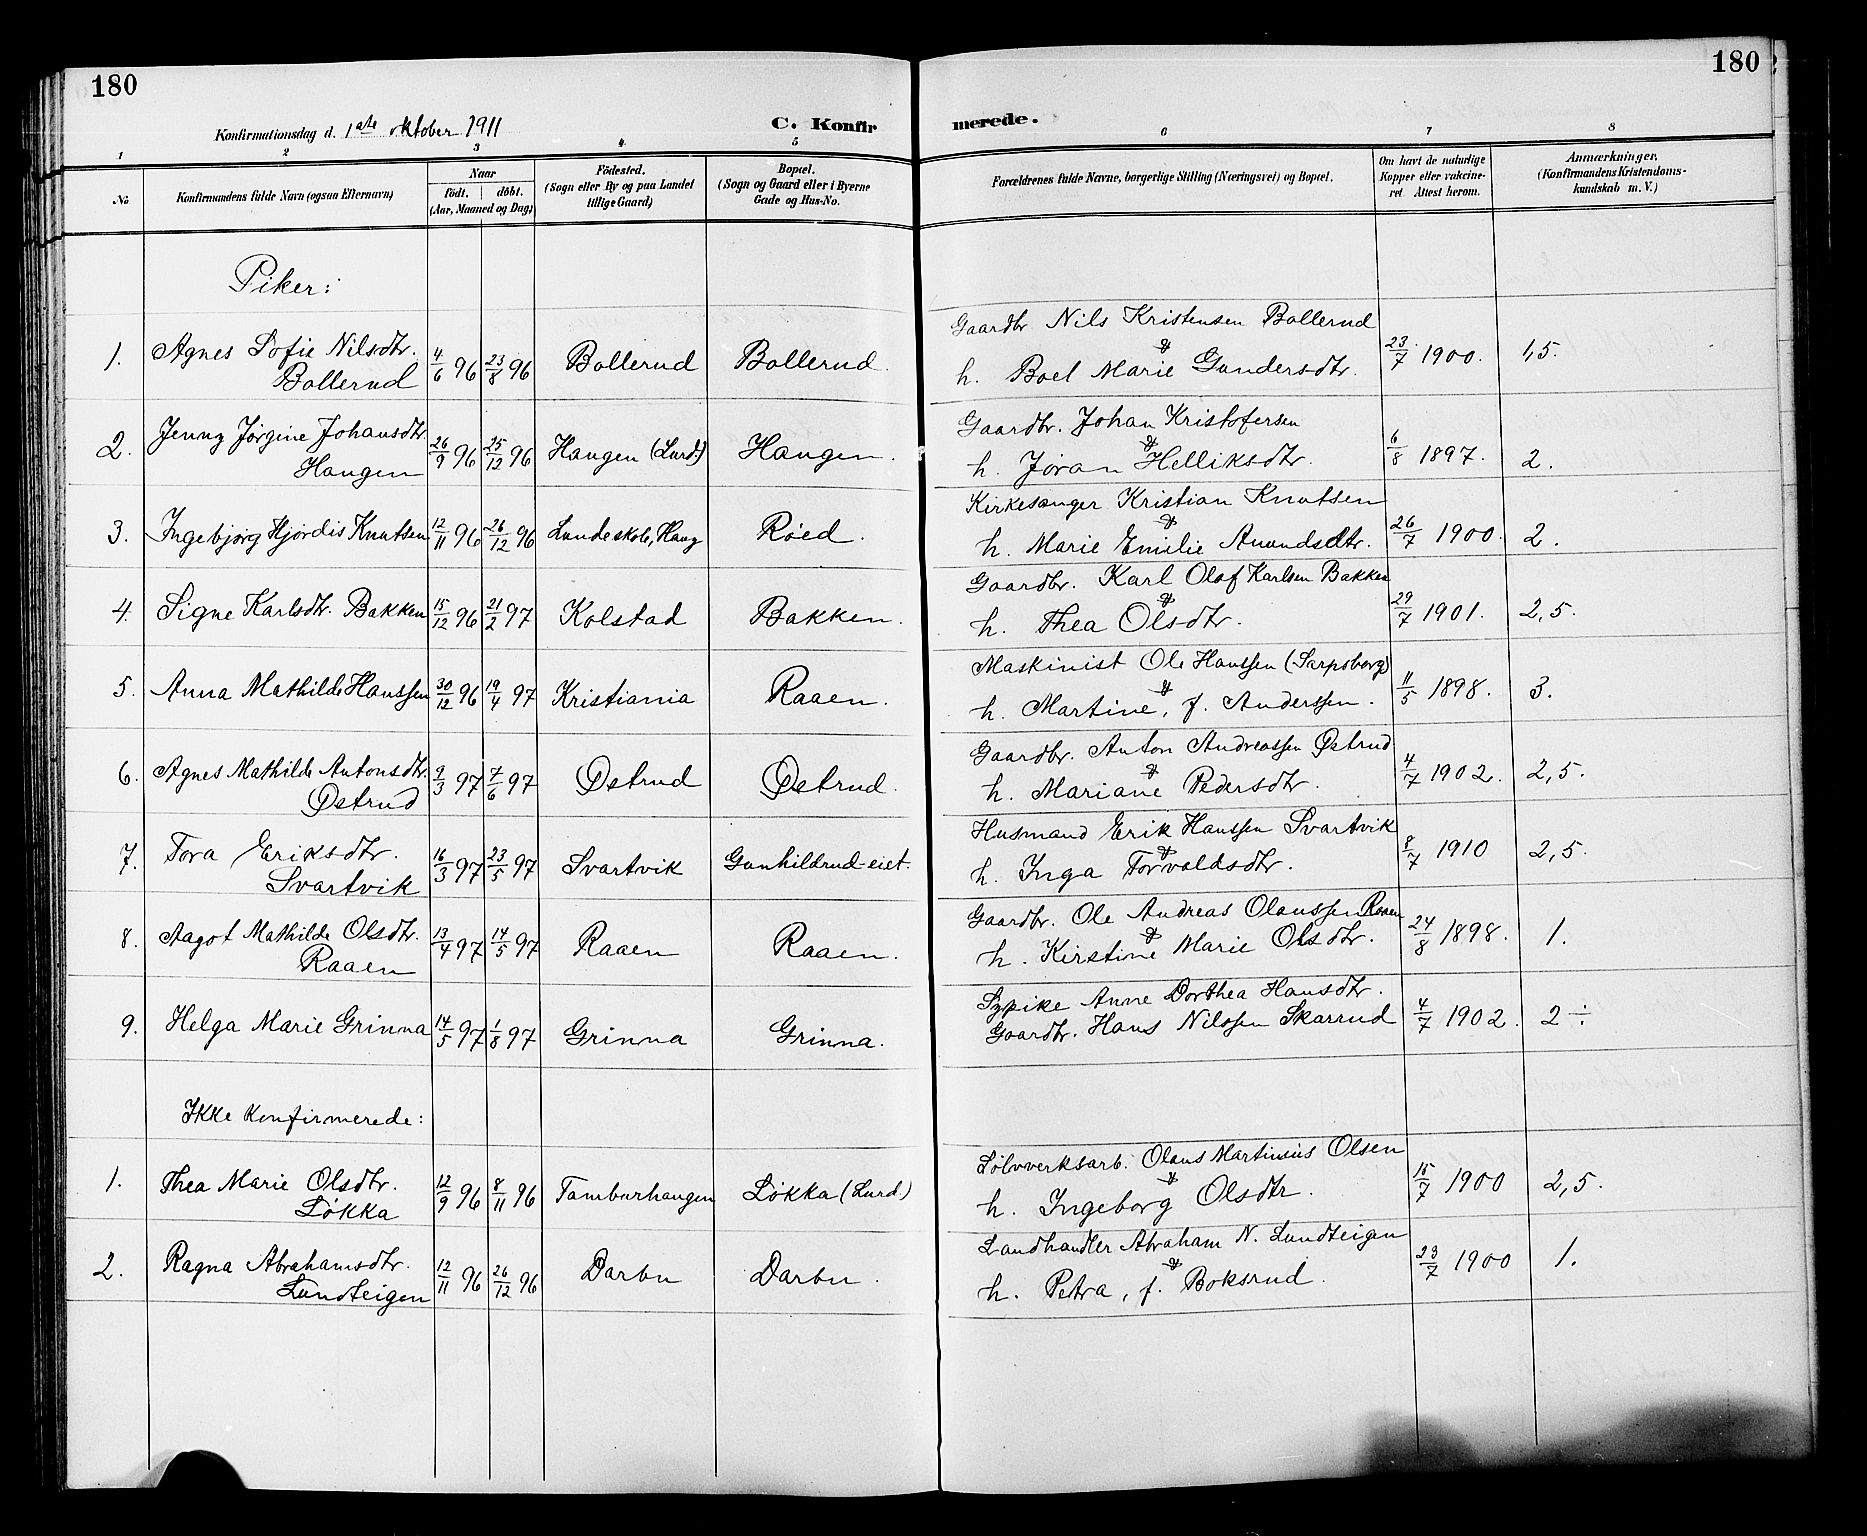 180
180
Konfirmationsdag d. 1ste oktober 1911
C. Konfir
merede.
1 2 3 4 5 6 7 8
No
Konfirmandens fulde Navn (ogsaa Efternavn)
Naar
født. døbt.
(Aar, Maaned og Dag)
Fødested.
(Sogn eller By og paa Landet
tillige Gaard)
Bopæl.
(Sogn og Gaard eller i Byerne
Gade og Hus-No.
Forældrenes fulde Navne, borgerlige Stilling (Næringsvei) og Bopæl.
Om havt de naturlige
Kopper eller vakcine-
ret Attest herom.
Anmærkninger.
(Konfirmandens Kristendoms-
kundskab m. V.)
Piker:
Gaardbr Nils Kristensen Bollerud
1. Agnes Sofie Nilsdtr. 4/6 96 23/8 96 Bollerud Bollerud. & 23/7 1900. 1,5.
Bollerud h. Boel Marie Gundersdtr.
2. Jenny Jørgine Johansdtr. 26/9 96 25/12 96 Haugen (Lurd.) Haugen. Gaardbr. Johan Kristofersen & 6/8 1897. 2.
Haugen h. Jøran Helliksdtr.
Kirkesanger Kristian Knutsen
3. Ingebjørg Hjørdis Knutsen 12/11 96 26/12 96 Lundeskole, Haug Røed. & 26/7 1900. 2.
h. Marie Emilie Amundsdtr.
Gaardbr. Karl Olaf Karlsen Bakken
4. Signe Karlsdtr. Bakken 15/12 96 21/2 97 Kolstad Bakken. & 29/7 1901. 2,5.
h. Thea Olsdtr.
Maskinist Ole Hanssen (Sarpsborg)
5. Anna Mathilde Hanssen 30/12 96 19/4 97 Kristiania Raaen. & 11/5 1898. 3.
h. Martine, f. Anderssen.
Gaardbr. Anton Andreassen Østrud
6. Agnes Mathilde Antonsdtr. 9/3 97 7/6 97 Østrud Østrud. & 4/7 1902. 2,5.
Østrud h. Mariane Pedersdtr.
Husmand Erik Hanssen Svartvik
7. Tora Eriksdtr. 16/3 97 23/5 97 Svartvik Gunhildrud-eiet. & 8/7 1910 2,5.
Svartvik h. Inga Torvaldsdtr.
Gaardbr. Ole Andreas Olaussen Raaen
8. Aagot Mathilde Olsdtr. 13/4 97 14/5 97 Raaen Raaen. & 24/8 1898. 1.
Raaen h. Kirstine Marie Olsdtr.
Sypike Anne Dorthea Hansdtr.
9. Helga Marie Grinna 14/5 97 1/8 97 Grinna Grinna. 4/7 1902. 2÷
Gaardbr. Hans Nilssen Skarrud
Ikke konfirmerede:
Sølvverksarb. Olaus Martinius Olsen
1. Thea Marie Olsdtr. 12/9 96 8/11 96 Tamburhaugen Løkka (Lurd.) & 15/7 1900 2,5.
Løkka h. Ingeborg Olsdtr.
Landhandler Abraham N. Lundteigen
2. Ragna Abrahamsdtr. 12/11 96 26/12 96 Darbu Darbu. & 23/7 1900 1.
Lundteigen h. Petra, f. Boksrud.